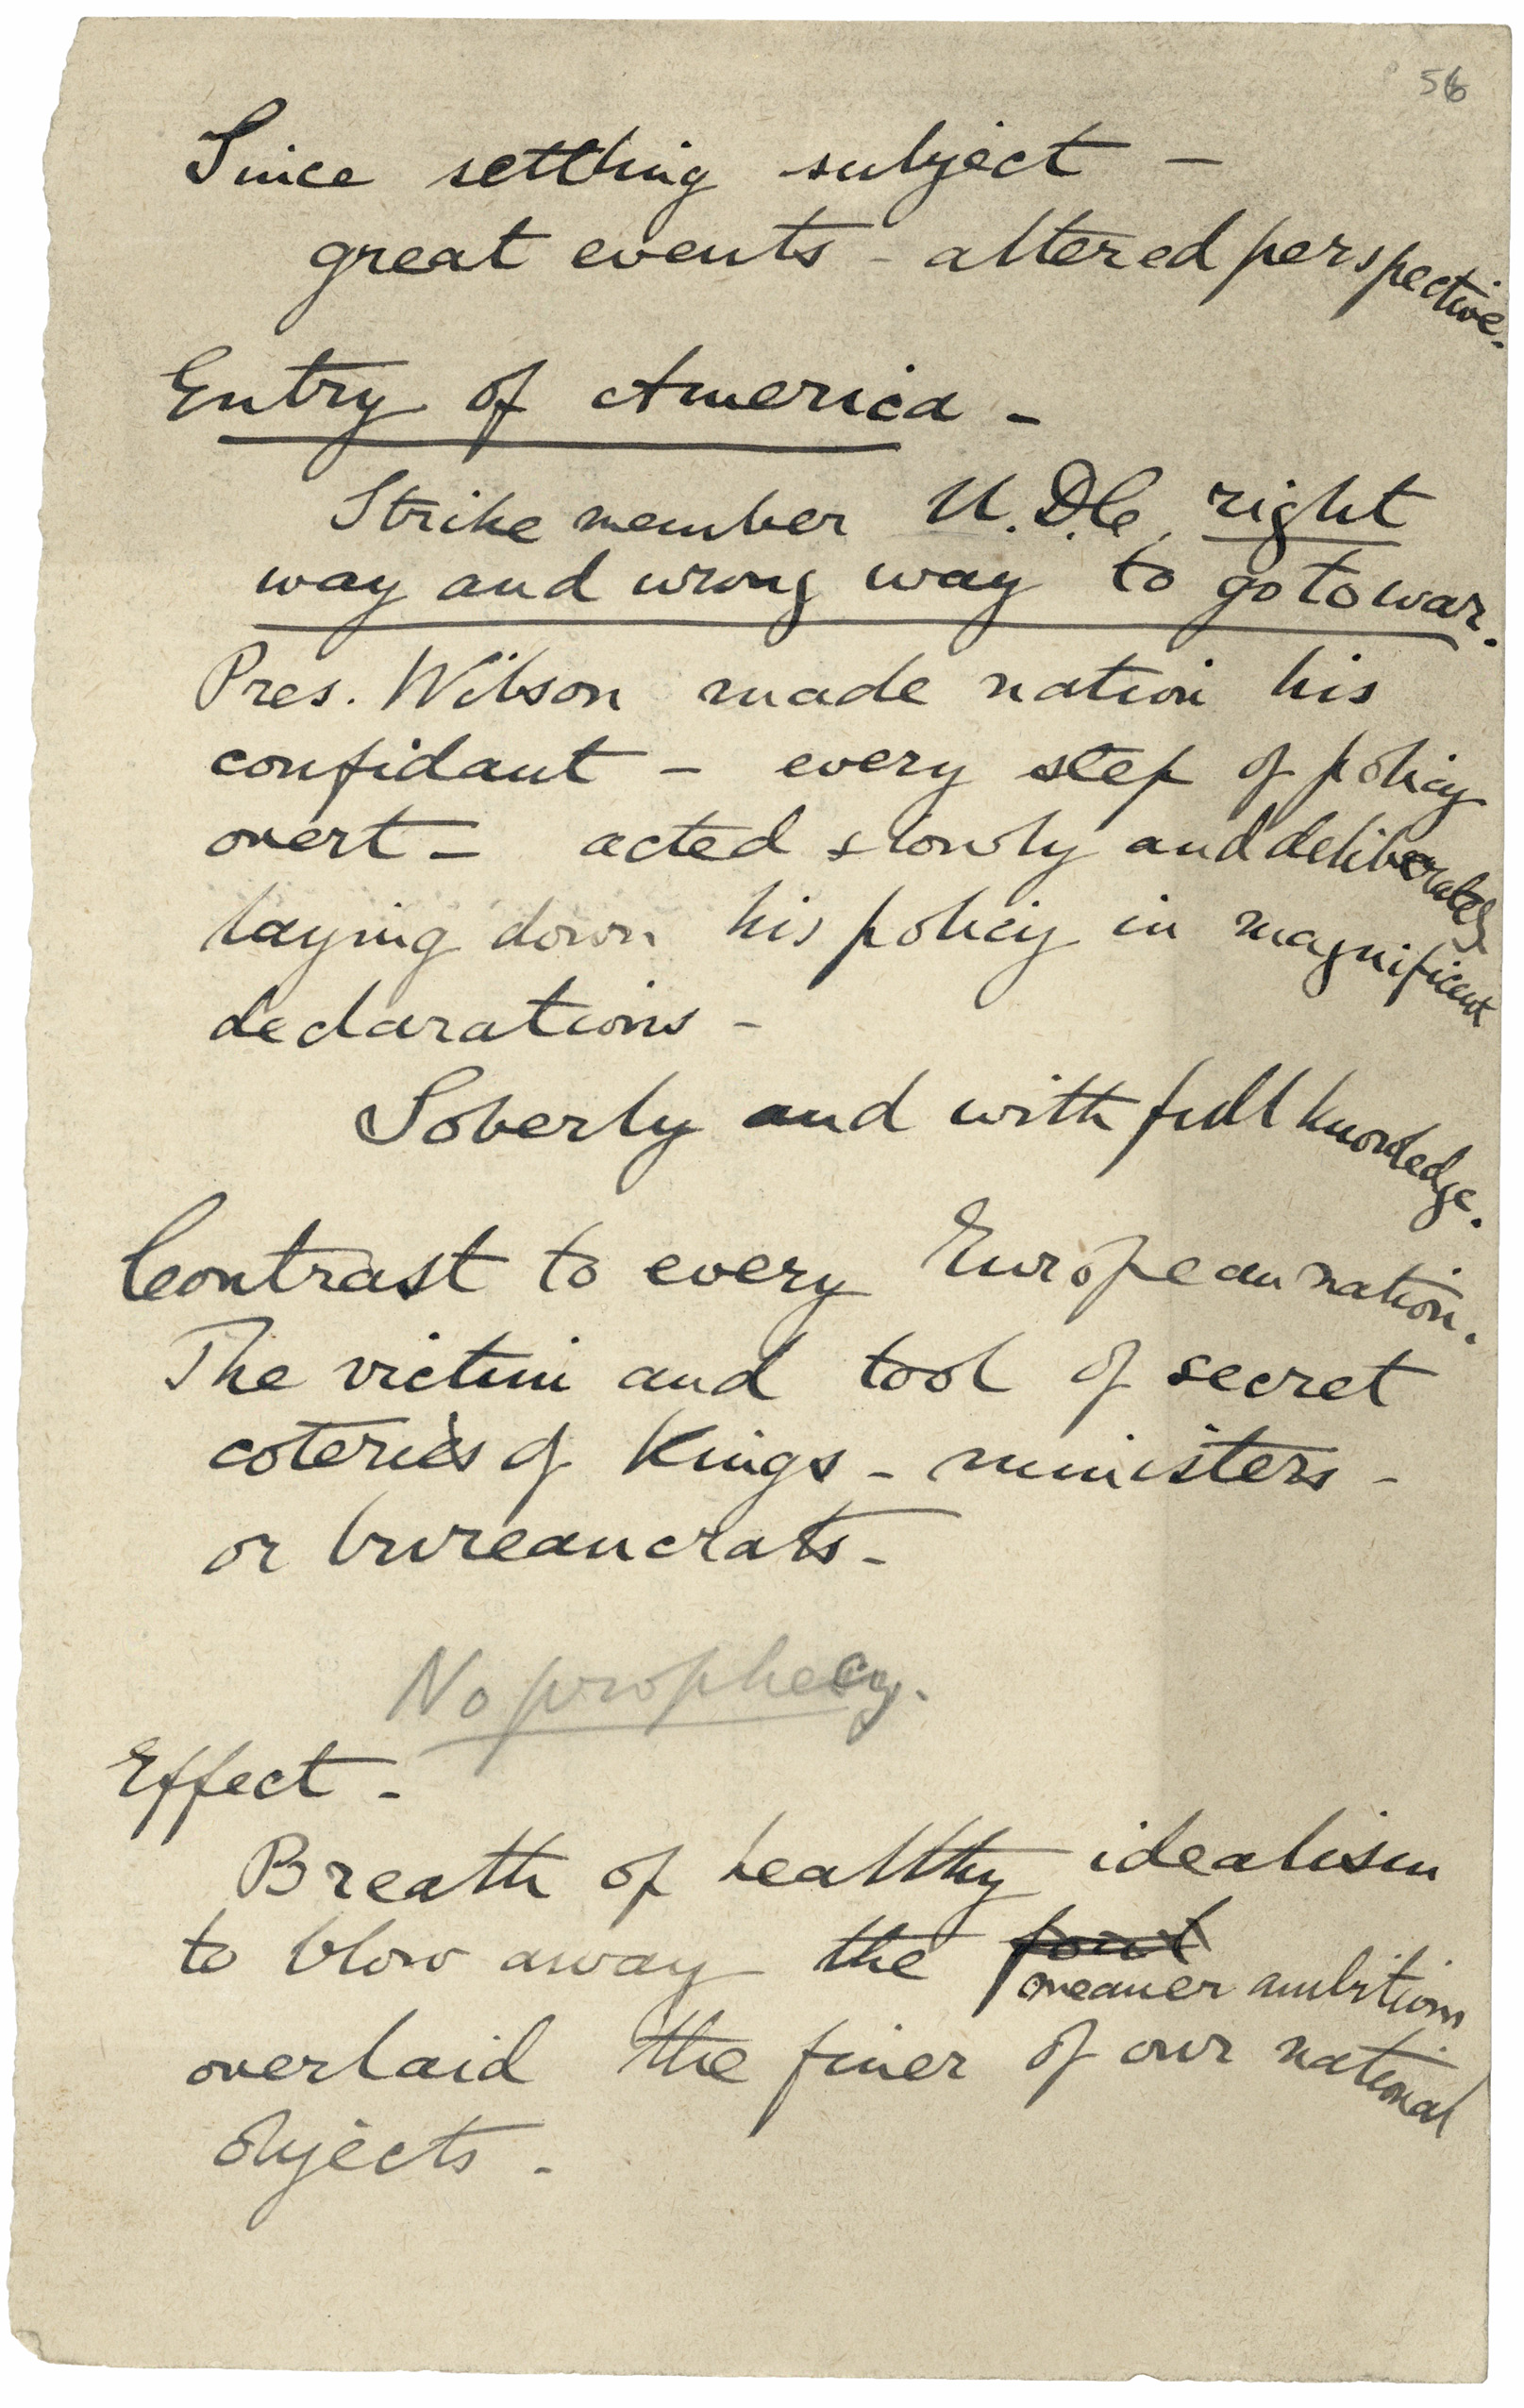 56
Since settling subject –
great events – altered perspective.
Entry of America –
Strike member U.D.C. right
way and wrong way to go to war.
Pres. Wilson made nation his
confidant – every step of policy
overt – acted slowly and deliberately
laying down his policy in magnificent
declarations –
Soberly and with full knowledge.
Contrast to every European nation.
The victim and tool of secret
coteries of Kings – ministers –
or bureaucrats –
No prophecy.
Effect –
Breath of healthy idealism
to blow away the foul
meaner ambitions
overlaid the finer of our national
objects –